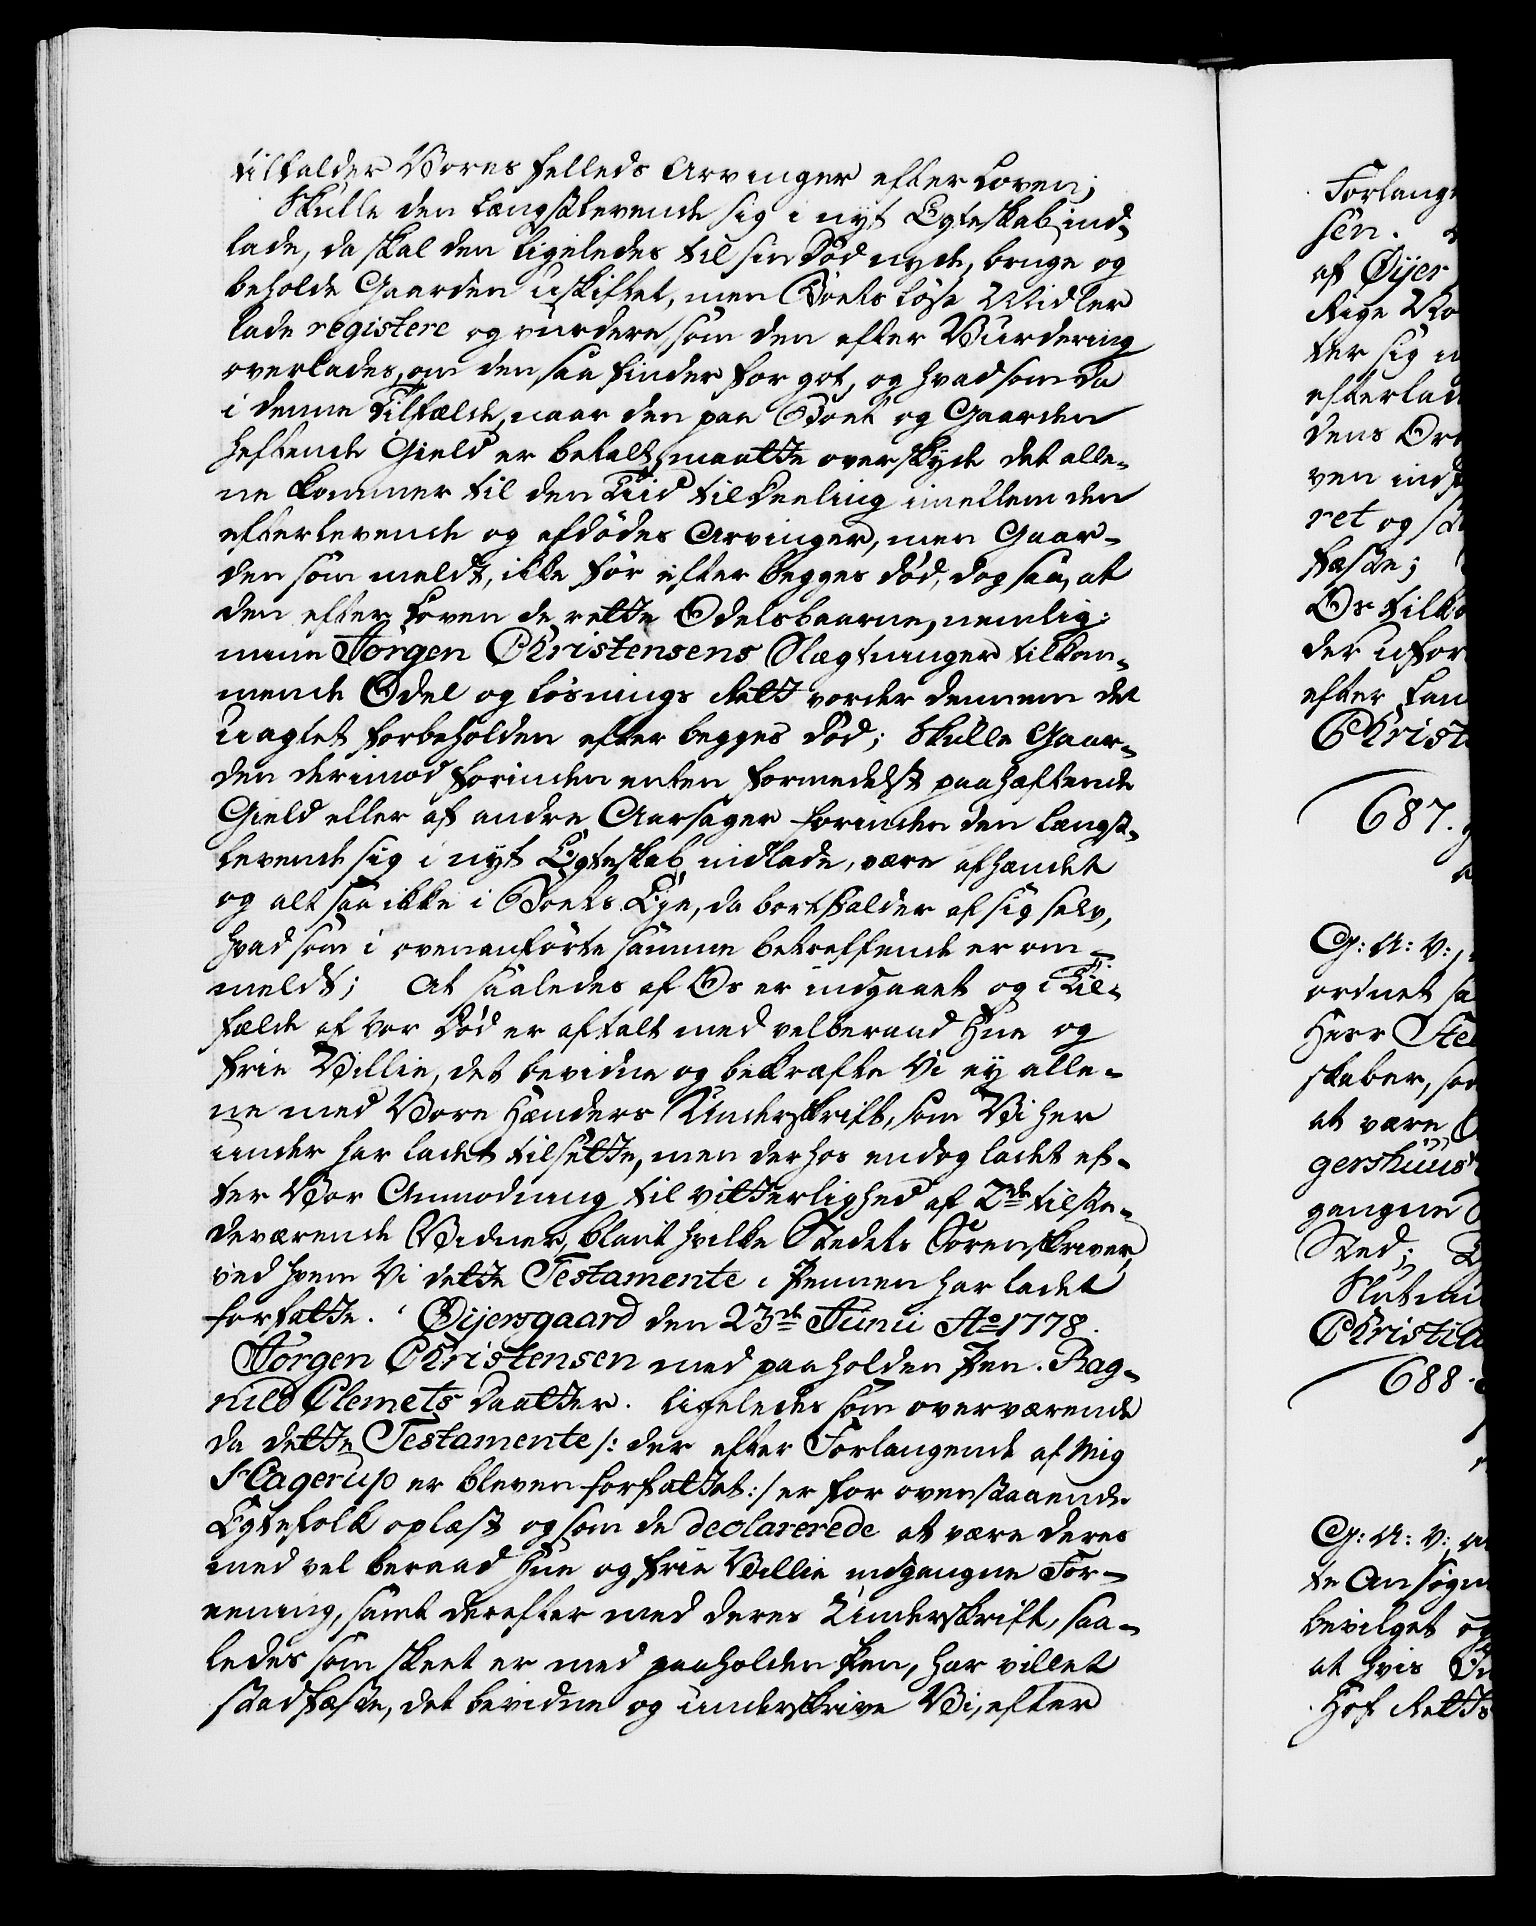 tilfalder Vores fælleds Arvinger efter Loven;
Skulle den Længstlevende sig i nyt Egteskab ind-
lade, da skal den ligeledes til sin Død nyde, bruge og
beholde Gaarden uskiftet, men Boets løse Midler
lade registere og vurdere som den efter Vurdering
overlades, om den saa finder for got, og hvad som da
i denne Tilfælde, naar den paa Boet og Gaarden
heftende Gield er betalt, maatte overskyde det alle-
ne kommer til den Tiid til Deeling imellem den
efterlevende og afdødes Arvinger, men Gaar-
den som meldt, ikke før efter begges Død, dog saa, at
den efter Loven de rette Odelsbaarne, nemlig:
mine Jørgen Christensens Slægtninger tilkom-
mende Odel og Løsnings Rett vorder dennem det
uagtet forbeholden efter begges Død; Skulle Gaar-
den derimod forinden enten formedelst paahæftende
Gield eller af andre Aarsager forinden den længst-
levende sig i nyt Egteskab indlade, være afhændet
og alt saa ikke i Boets Eje, da bortfalder af sig selv,
hvad som i ovenanførte samme betreffende er om-
meldt; At saaledes af Os er indgaaet og i Til-
fælde af vor Død er aftalt med velberaad Hue og
frie Villie, det bevidne og bekræfte Vi ey alle-
ne med Vore Hænders Underskrift, som Vi her
under har ladet tilsette, men derhos endog ladet ef-
ter Vor Anmodning til vitterlighed af 2de tilste-
deværende Vidner, blant hvilke Stedets Sorenskriver,
ved hvem Vi dette Testamente i Pennen har ladet
forfatte. Øijersgaard den 23de Junii Ao 1778.
Jørgen Christensen med paaholden Pen. Rag-
nild Clemets Daatter. Ligeledes som overværende
da dette Testamente /: der efter Forlangende af Mig
Hagerup er bleven forfattet :/ er for ovenstaaende
Egtefolk oplæst og som de declarerede at være deres
med vel beraad Hue og frie Villie indgangne For-
eening, samt derefter med deres Underskrift, saa-
ledes som skeet er med paaholden Pen, har villet
stadfæste, det bevidne og underskrive Vi, efter
Forlang
sen.
af Øijer
Rige
ter sig
efterlad
dens
ven ind
ret og
fæste;
Os
der ufor
efter
Christ
687.
G: A: V:
ordnet
Herr
skaber,
at være
gershuus
gangne
Sted;
Christia
688.
G: A: V:
te Ansøgn
bevilget og
at hvis
Hof Retts